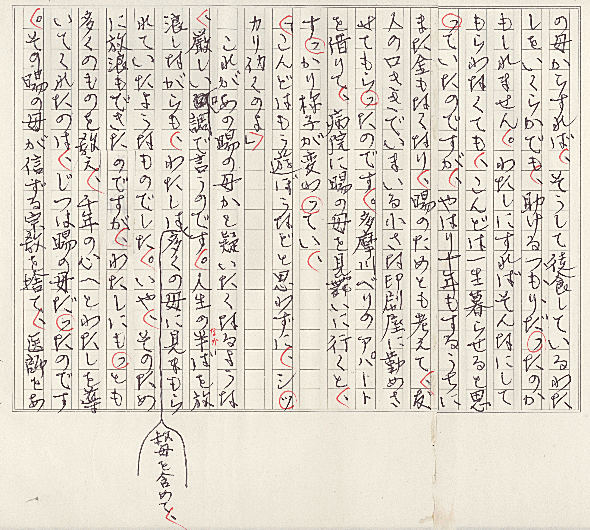 の母からすれば、そうして徒食しているわた
しをいくらかでも、助けるつもりだったのか
もしれません。わたしにすればそんなにして
もらわなくても、こんどは一生暮らせると思
っていたのですが、やはり十年もするうちに
また金もなくなり、暘のためとも考えて、友
人の口ききでいまいる小さな印刷屋に勤めさ
せてもらったのです。多摩川べりのアパート
を借りて、病院に暘の母を見舞いに行くと、
すっかり様子が変わってい、
「こんどはもう遊ぼうなどと思わずに、シッ
カリ行くのよ」
これがあの暘の母かと疑いたくなるような
、厳しい口調で言うのです。人生の半ばを放
なか
浪しながらも、わたしは多くの母に見まもら
れていたようなものでした。いや、そのため
に放浪もできたのですが、わたしにもっとも
多くのものを教え、千年の心へとわたしを導
いてくれたのは、じつは暘の母だったのです
。その暘の母が信ずる宗教を捨て、医師をあ
叔母を含めて、